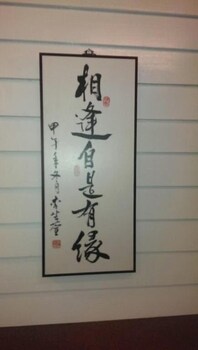 相逢自是有缘
甲午年六月